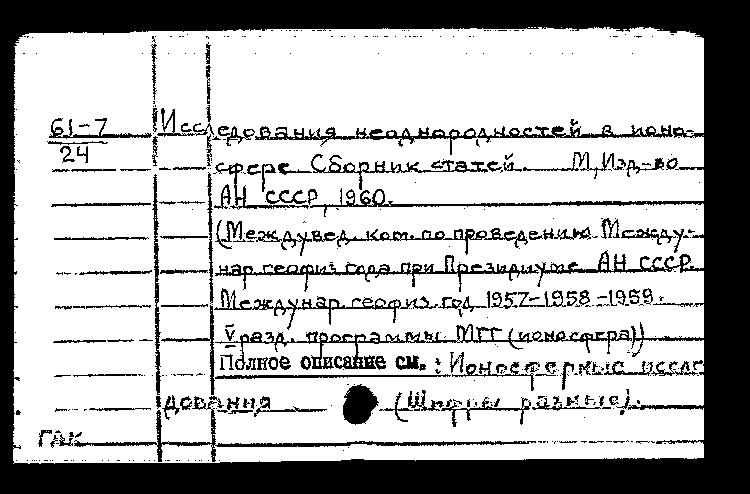 61-7
24
Исследования неоднородностей в ионо-
сфере Сборник статей. М, Изд-во
АН СССР, 1960.
(Междувед. ком. по проведению Между-
нар. геофиз года при Президиуме АН СССР.
Междунар. геофиз. год 1957-1958-1959.
V разд. программы МГГ (ионосфера))
Полное описание см. : Ионосферные иссле
дования (Шифры разные).
ГАК